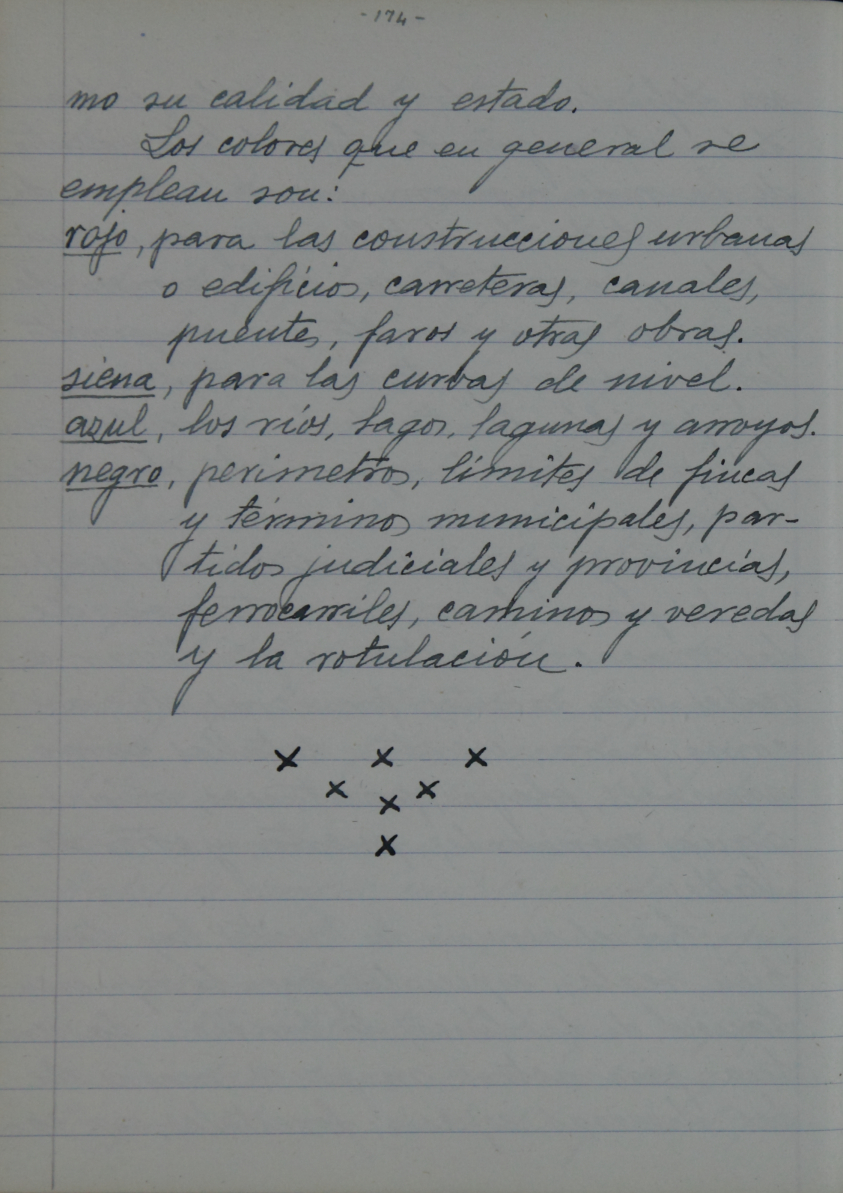 - 174 -
mo su calidad y estado.
Los colores que en general se
emplean son:
rojo, para las construcciones urbanas
o edificios, carreteras, canales,
puentes, faros y otras obras.
siena, para las curvas de nivel.
azul, los ríos, lagos, lagunas y arroyos.
negro, perímetros, límites de fincas
y términos municipales, par-
tidos judiciales y provincias,
ferrocarriles, caminos y veredas
y la rotulación.
x x x
x x
x
x